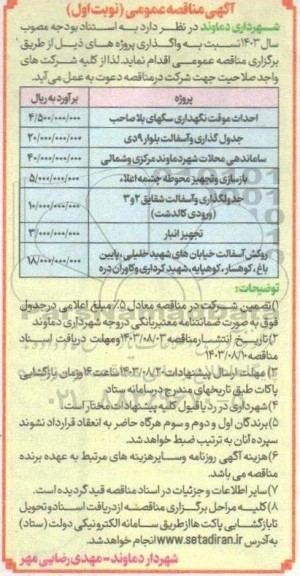 آگهی مناقصه عمومی (نوبت اول)
شهرداری دماوند در نظر دارد به استناد بودجه مصوب
سال ۱۴۰۳ نسبت به واگذاری پروژه های ذیل از طریق
برگزاری مناقصه عمومی اقدام نماید. لذا از کلیه شرکت های
واجد صلاحیت جهت شرکت در مناقصه دعوت به عمل می آید.
پروژه برآورد به ریال
احداث موقت نگهداری سگهای بلاصاحب ۴/۵۰۰/۰۰۰/۰۰۰
جدول گذاری و آسفالت بلوار ۹ دی ۲۰/۰۰۰/۰۰۰/۰۰۰
ساماندهی محلات شهر دماوند مرکزی و شمالی ۴۰/۰۰۰/۰۰۰/۰۰۰
بازسازی و تجهیز محوطه چشمه اعلاء ۵/۰۰۰/۰۰۰/۰۰۰
جدولگذاری و آسفالت شقایق ۲ و ۳
(ورودی کالدشت) ۱۰/۰۰۰/۰۰۰/۰۰۰
تجهیز انبار ۳/۰۰۰/۰۰۰/۰۰۰
روکش آسفالت خیابان های شهید خلیلی، پایین
باغ، کوهسار، کوهپایه، شهید کرداری و کاوران دره ۱۸/۰۰۰/۰۰۰/۰۰۰
توضیحات:
۱) تضمین شرکت در مناقصه معادل ۵٪ مبلغ اعلامی در جدول
فوق به صورت ضمانتنامه معتبر بانکی در وجه شهرداری دماوند
۲) تاریخ انتشار مناقصه ۱۴۰۳/۰۸/۰۳ و مهلت دریافت اسناد
مناقصه ۱۴۰۳/۰۸/۱۰
۳) مهلت ارسال پیشنهادات ۱۴۰۳/۰۸/۲۰ ساعت ۱۴ و زمان بازگشایی
پاکات طبق تاریخهای مندرج در سامانه ستاد
۴) شهرداری در رد یا قبول کلیه پیشنهادات مختار است.
۵) برندگان اول و دوم و سوم هرگاه حاضر به انعقاد قرارداد نشوند
سپرده آنان به ترتیب ضبط خواهد شد.
۶) هزینه آگهی روزنامه و سایر هزینه های مرتبط به عهده برنده
مناقصه می باشد.
۷) سایر اطلاعات و جزئیات در اسناد مناقصه قید گردیده است.
۸) کلیه مراحل برگزاری مناقصه از دریافت اسناد و تحویل
تا بازگشایی پاکت ها از طریق سامانه الکترونیکی دولت (ستاد)
به آدرس www.setadiran.ir انجام خواهد شد.
شهردار دماوند - مهدی رضایی مهر